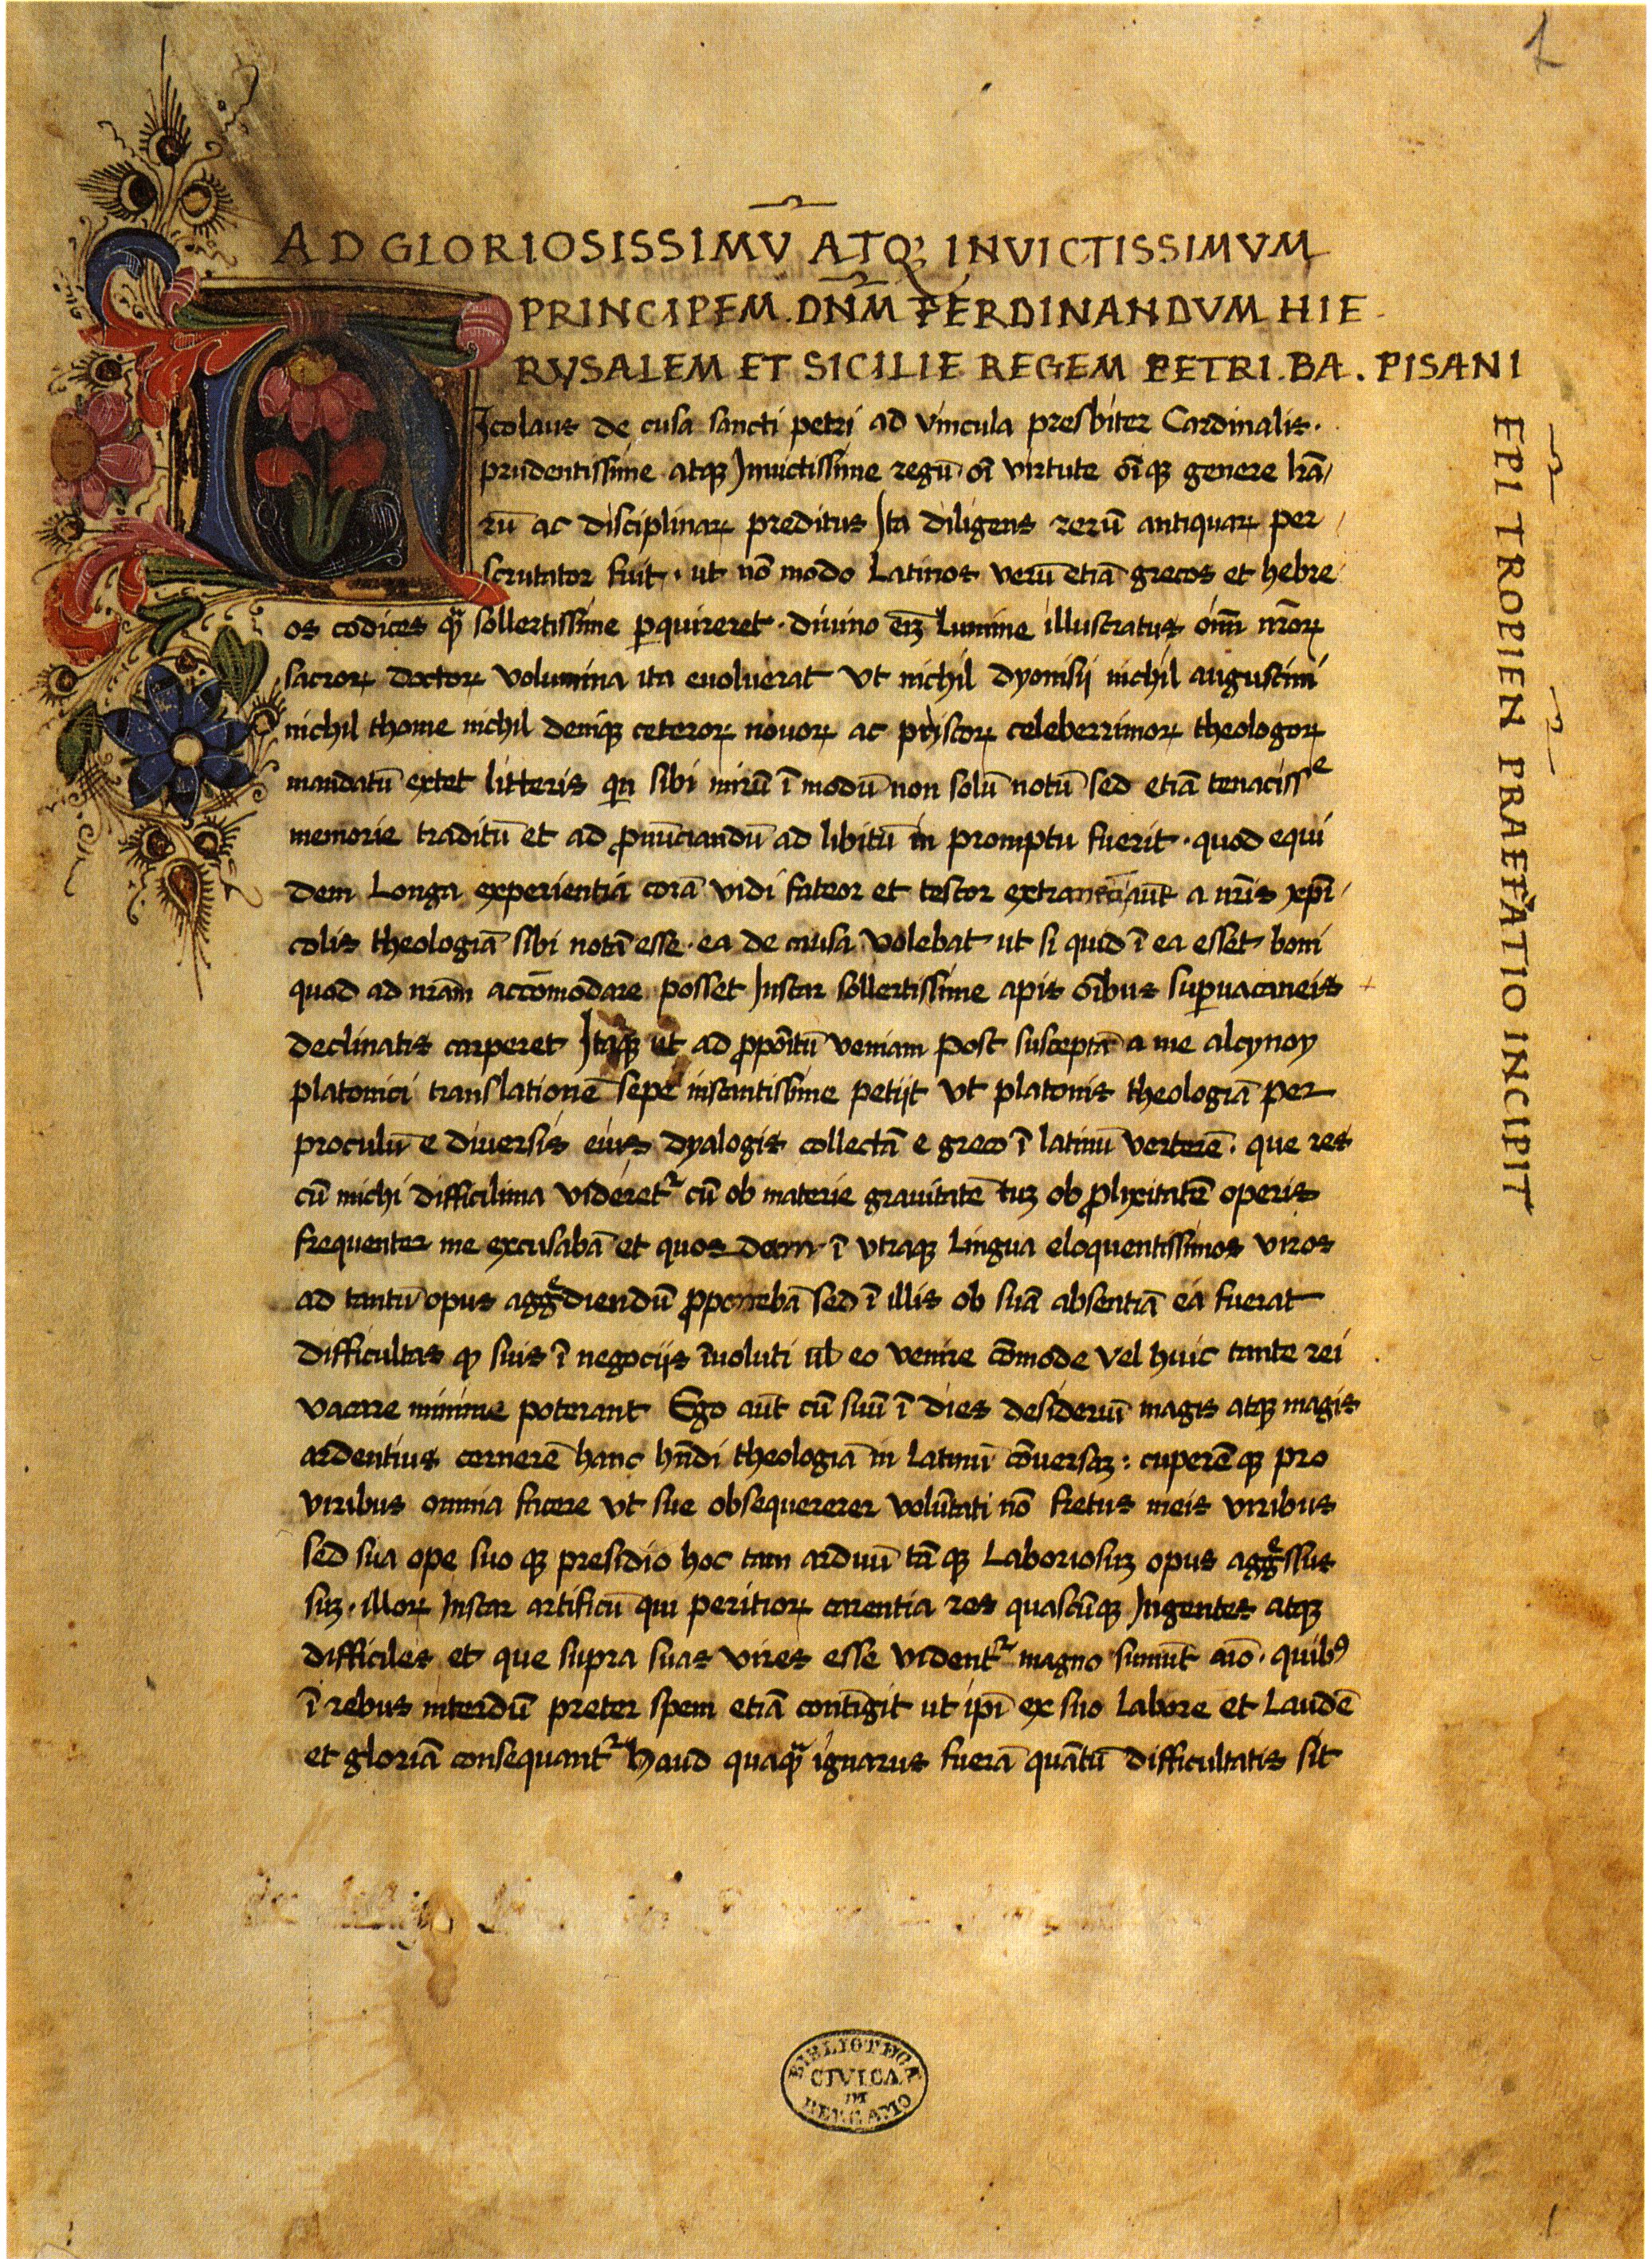 1
AD GLORIOSISSIMV̄ ATQꝫ INVICTISSIMVM
PRINCIPEM. DN̄M FERDINANDVM HIE
RVSALEM ET SICILIE REGEM PETRI. BA. PISANI
EPI TROPIEN PRAEFATIO INCIPIT
Nicolaus de cusa sancti petri ad vincula presbiter Cardinalis.
prudentissime atqꝫ Jnuictissime regū. oī virtute oīqꝫ genere lrā/
rū ac disciplinaꝝ preditus Ita diligens rerū antiquaꝝ per
scrutator fuit. ut nō modo Latinos verū etiā grecos et hebre
os codices qͣꝫ sollertissime ꝑquireret. diuino eīꝫ Lumine illustratus oīm nr̄oꝝ
sacroꝝ doctoꝝ volumina ita euoluerat Vt nichil dyonisij nichil augustini
nichil thome nichil deniqꝫ ceteroꝝ nouoꝝ ac priscoꝝ celeberrimoꝝ theologoꝝ
mandatū extet litteris qn sibi mirū ī modū non solū notū sed etiā tenacissᵉ
memorie traditū et ad ꝓnūciandū ad libitū in promptu fuerit. quod equi
dem Longa experientia corā vidi fateor et testor extraneā aūt a nr̄is xp̄i
colis theologiā sibi notā esse. ea de causa volebat ut si quid ī ea esset boni
quod ad nr̄am accōmodare posset Instar sollertissime apis oībus suꝑuacaneis
declinatis carperet Itaqꝫ ut ad ꝓpōitū veniam Post susceptā a me alcynoy
platonici translationē sepe instantissime petijt Vt platonis theologiā per
proculū e diuersis eius dyalogis collectā e greco ī latinū verterē. que res
cū michi difficilima videretᷣ cū ob materie grauitatē tuꝫ ob ꝓlixitatē operis
frequenter me excusabā et quosdam ī vtraqꝫ Lingua eloquentissimos viros
ad tantū opus aggͤdiendū ꝓponebā sed ī illis ob suā absentiā ea fuerat
difficultas qꝫ suis ī negocijs īuoluti ul̄ eo venire cōmode vel huic tante rei
vacare minime poterant Ego aūt cū suū ī dies desideriū magis atqꝫ magis
ardentius cernerē hanc hn̄di theologiā in Latinū cōuersaꝫ: cuperēqꝫ pro
viribus omnia facere Vt sue obsequererer volūtati nō fretus meis viribus
sed sua ope suo qꝫ presidio hoc tam arduū tāqꝫ Laboriosuꝫ opus aggͤssus
suꝫ. illoꝝ Instar artificū qui peritioꝝ carentia res quascūqꝫ Jngentes atqꝫ
difficiles et que supra suas vires esse videntᷣ magno sumūt aīo. quibꝰ
ī rebus interdū preter spem etiā contīgit ut ip̄i ex suo Labore et Laudē
et gloriā consequantᷣ haud quaqͣꝫ ignarus fuerā quātū difficultatis sit
BIBLIOTECA
CIVICA
IN
BERGAMO